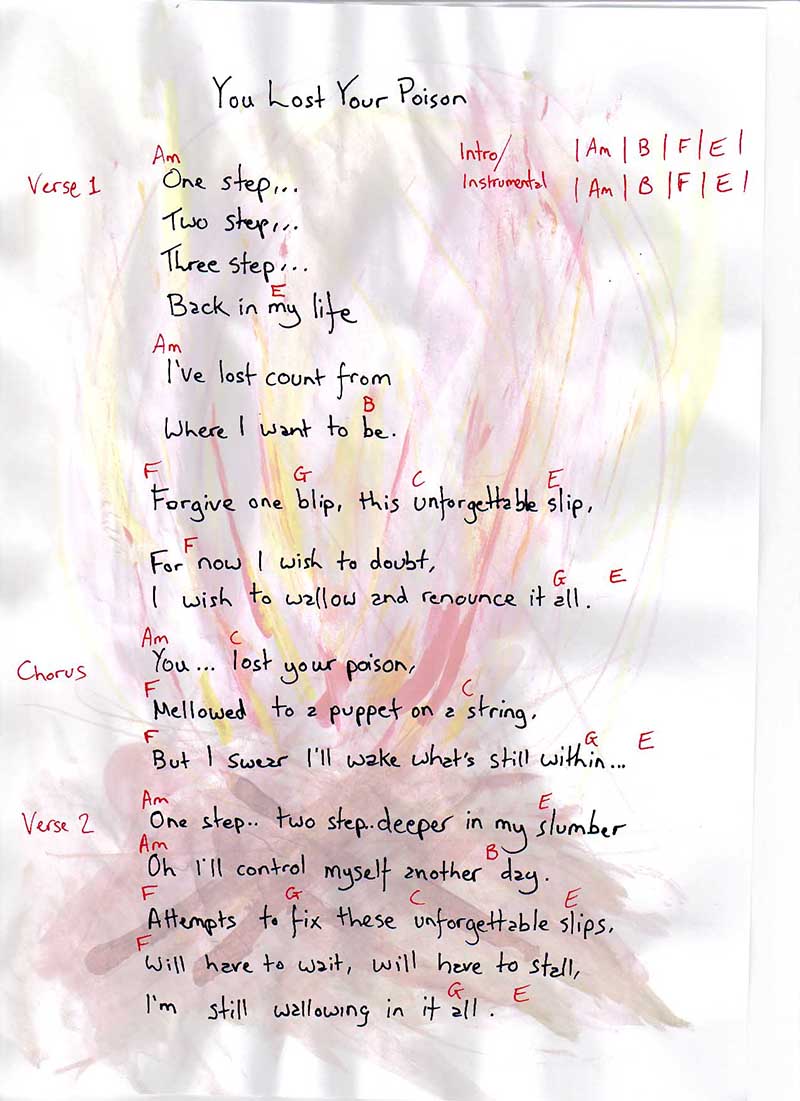 You Lost Your Poison
Intro/ | Am | B | F | E |
Instrumental | Am | B | F | E |
Am
Verse 1 One step...
Two step...
Three step...
E
Back in my life
Am
I've lost count from
B
Where I want to be.
F G C E
Forgive one blip, this unforgettable slip,
F
For now I wish to doubt,
G E
I wish to wallow and renounce it all.
Am C
Chorus You... lost your poison,
F C
Mellowed to a puppet on a string,
F G E
But I swear I'll wake what's still within...
Am E
Verse 2 One step.. two step..deeper in my slumber
Am B
Oh I'll control myself another day.
F G C E
Attempts to fix these unforgettable slips,
F
Will have to wait, will have to stall,
G E
I'm still wallowing in it all.